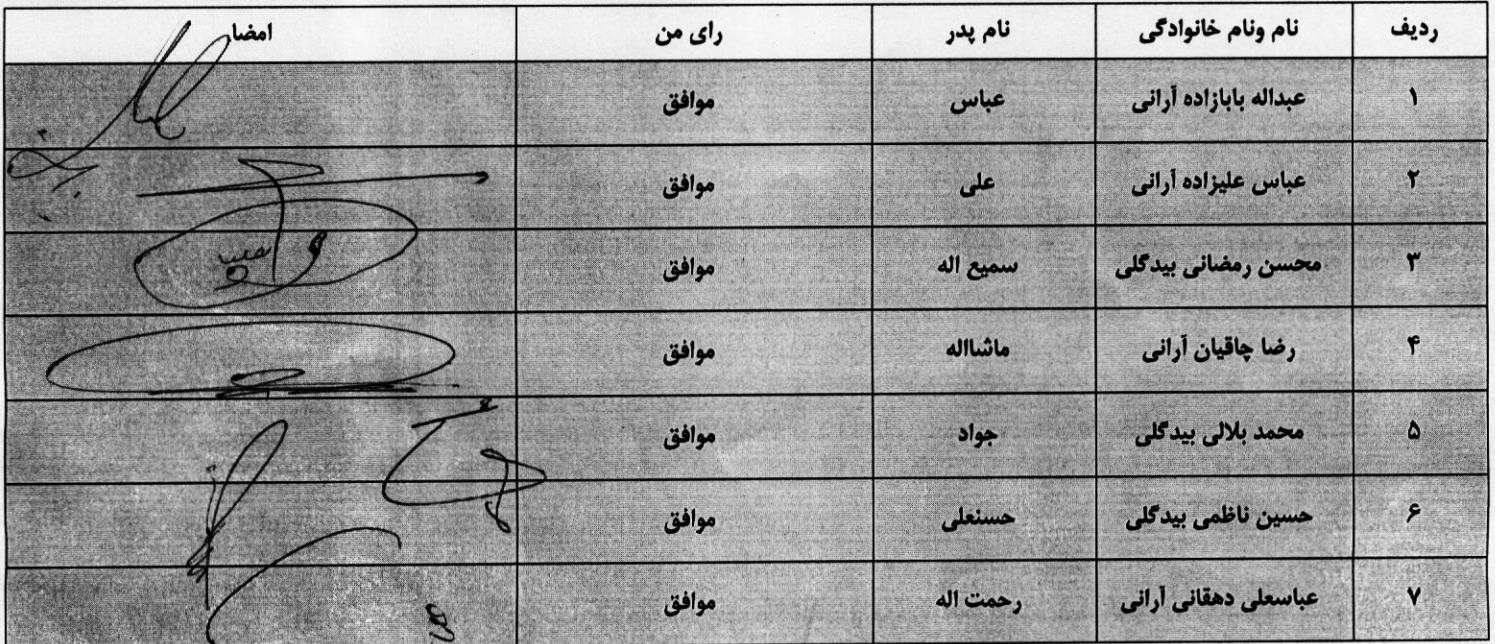 ردیف نام ونام خانوادگی نام پدر رای من امضا
۱ عبداله بابازاده آرانی عباس موافق
۲ عباس علیزاده آرانی علی موافق
۳ محسن رمضانی بیدگلی سمیع اله موافق
۴ رضا چاقیان آرانی ماشااله موافق
۵ محمد بلالی بیدگلی جواد موافق
۶ حسین ناظمی بیدگلی حسنعلی موافق
۷ عباسعلی دهقانی آرانی رحمت اله موافق